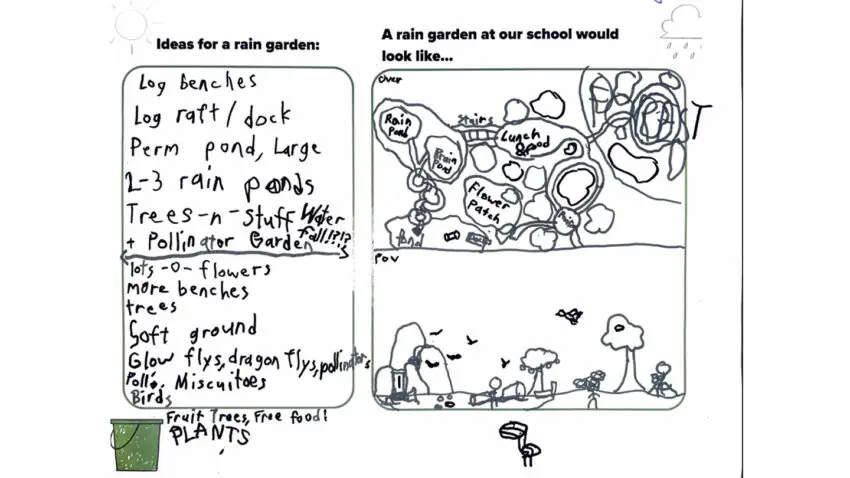 Ideas for a rain garden:
Log benches
Log raft / dock
Perm pond, Large
2-3 rain ponds
Trees-n-stuff Water
fall!?!?
+ Pollinator Garden
lots -o- flowers
more benches
trees
Soft ground
Glow flys, dragon flys, pollinators
Pollo. Miscuitoes
Birds
Fruit Trees, Free food!
PLANTS
A rain garden at our school would
look like...
Over
Rain
Pond
Stairs
Lunch
&pod
Rain
Pond
Flower
Patch
Pond
Pov